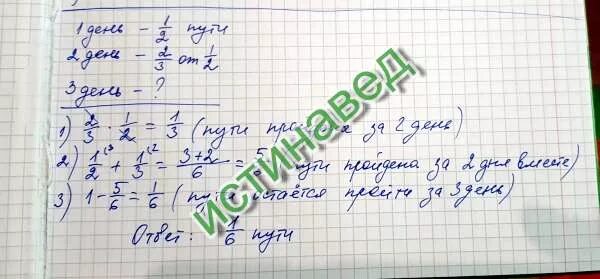 1 день – 1/2 пути
2 день – 2/3 от 1/2
3 день – ?
1) 2/3 · 1/2 = 1/3 (пути за 2 день)
2) 1/2 + 1/3 = 3+2/6 = 5/ пути пройдено за 2 дня вместе)
3) 1 – 5/6 = 1/6 (пути остаётся пройти за 3 день)
Ответ: 1/6 пути
ИСТИНАВЕД